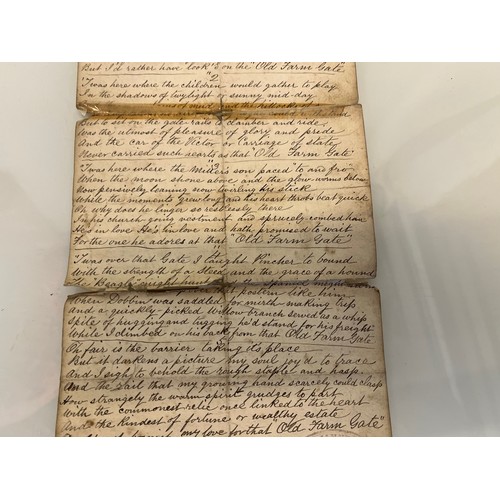 But I'd rather have look'd on the "Old Farm Gate"
"2
'Twas here where the children would gather to play
In the shadows of twylight or sunny mid-day
But to set on the gate rails to clamber and ride
Was the utmost of pleasure of glory and pride
And the car of the Victor or carriage of state
Never carried such hearts as that "Old Farm Gate"
'Twas here where the Miller's son paced to an fro
When the moon shone above and the glow worms below
Now pensively leaning now twirling his stick
While the moments grew long and his heart throbs beat quick
Oh why does he linger so restlessly there
In his church going vestment and sprucely combed hair
He's in love He's in love and hath promised to wait
For the one he adores at that "Old Farm Gate"
'Twas over that Gate I taught Pincher to bound
With the strength of a Steed and the grace of a hound
The Beagle might hunt the Spaniel might
postern like him
When Dobbin was saddled for mirth making trips
and a quickly picked Willow branch served as a whip
Spite of hugging and lugging he'd stand for his freight
While I climbed on his back from that Old Farm Gate
Oh fair is the barrier taking its place
But it darkens a picture my soul joy'd to trace
And I sigh to behold the rough staple and hasp
And the rail that my growing hand scarcely could clasp
How strangely the warm spirit grudges to part
With the commonest relic once linked to the heart
And the kindest of fortune or wealthy estate
my love for that "Old Farm Gate"